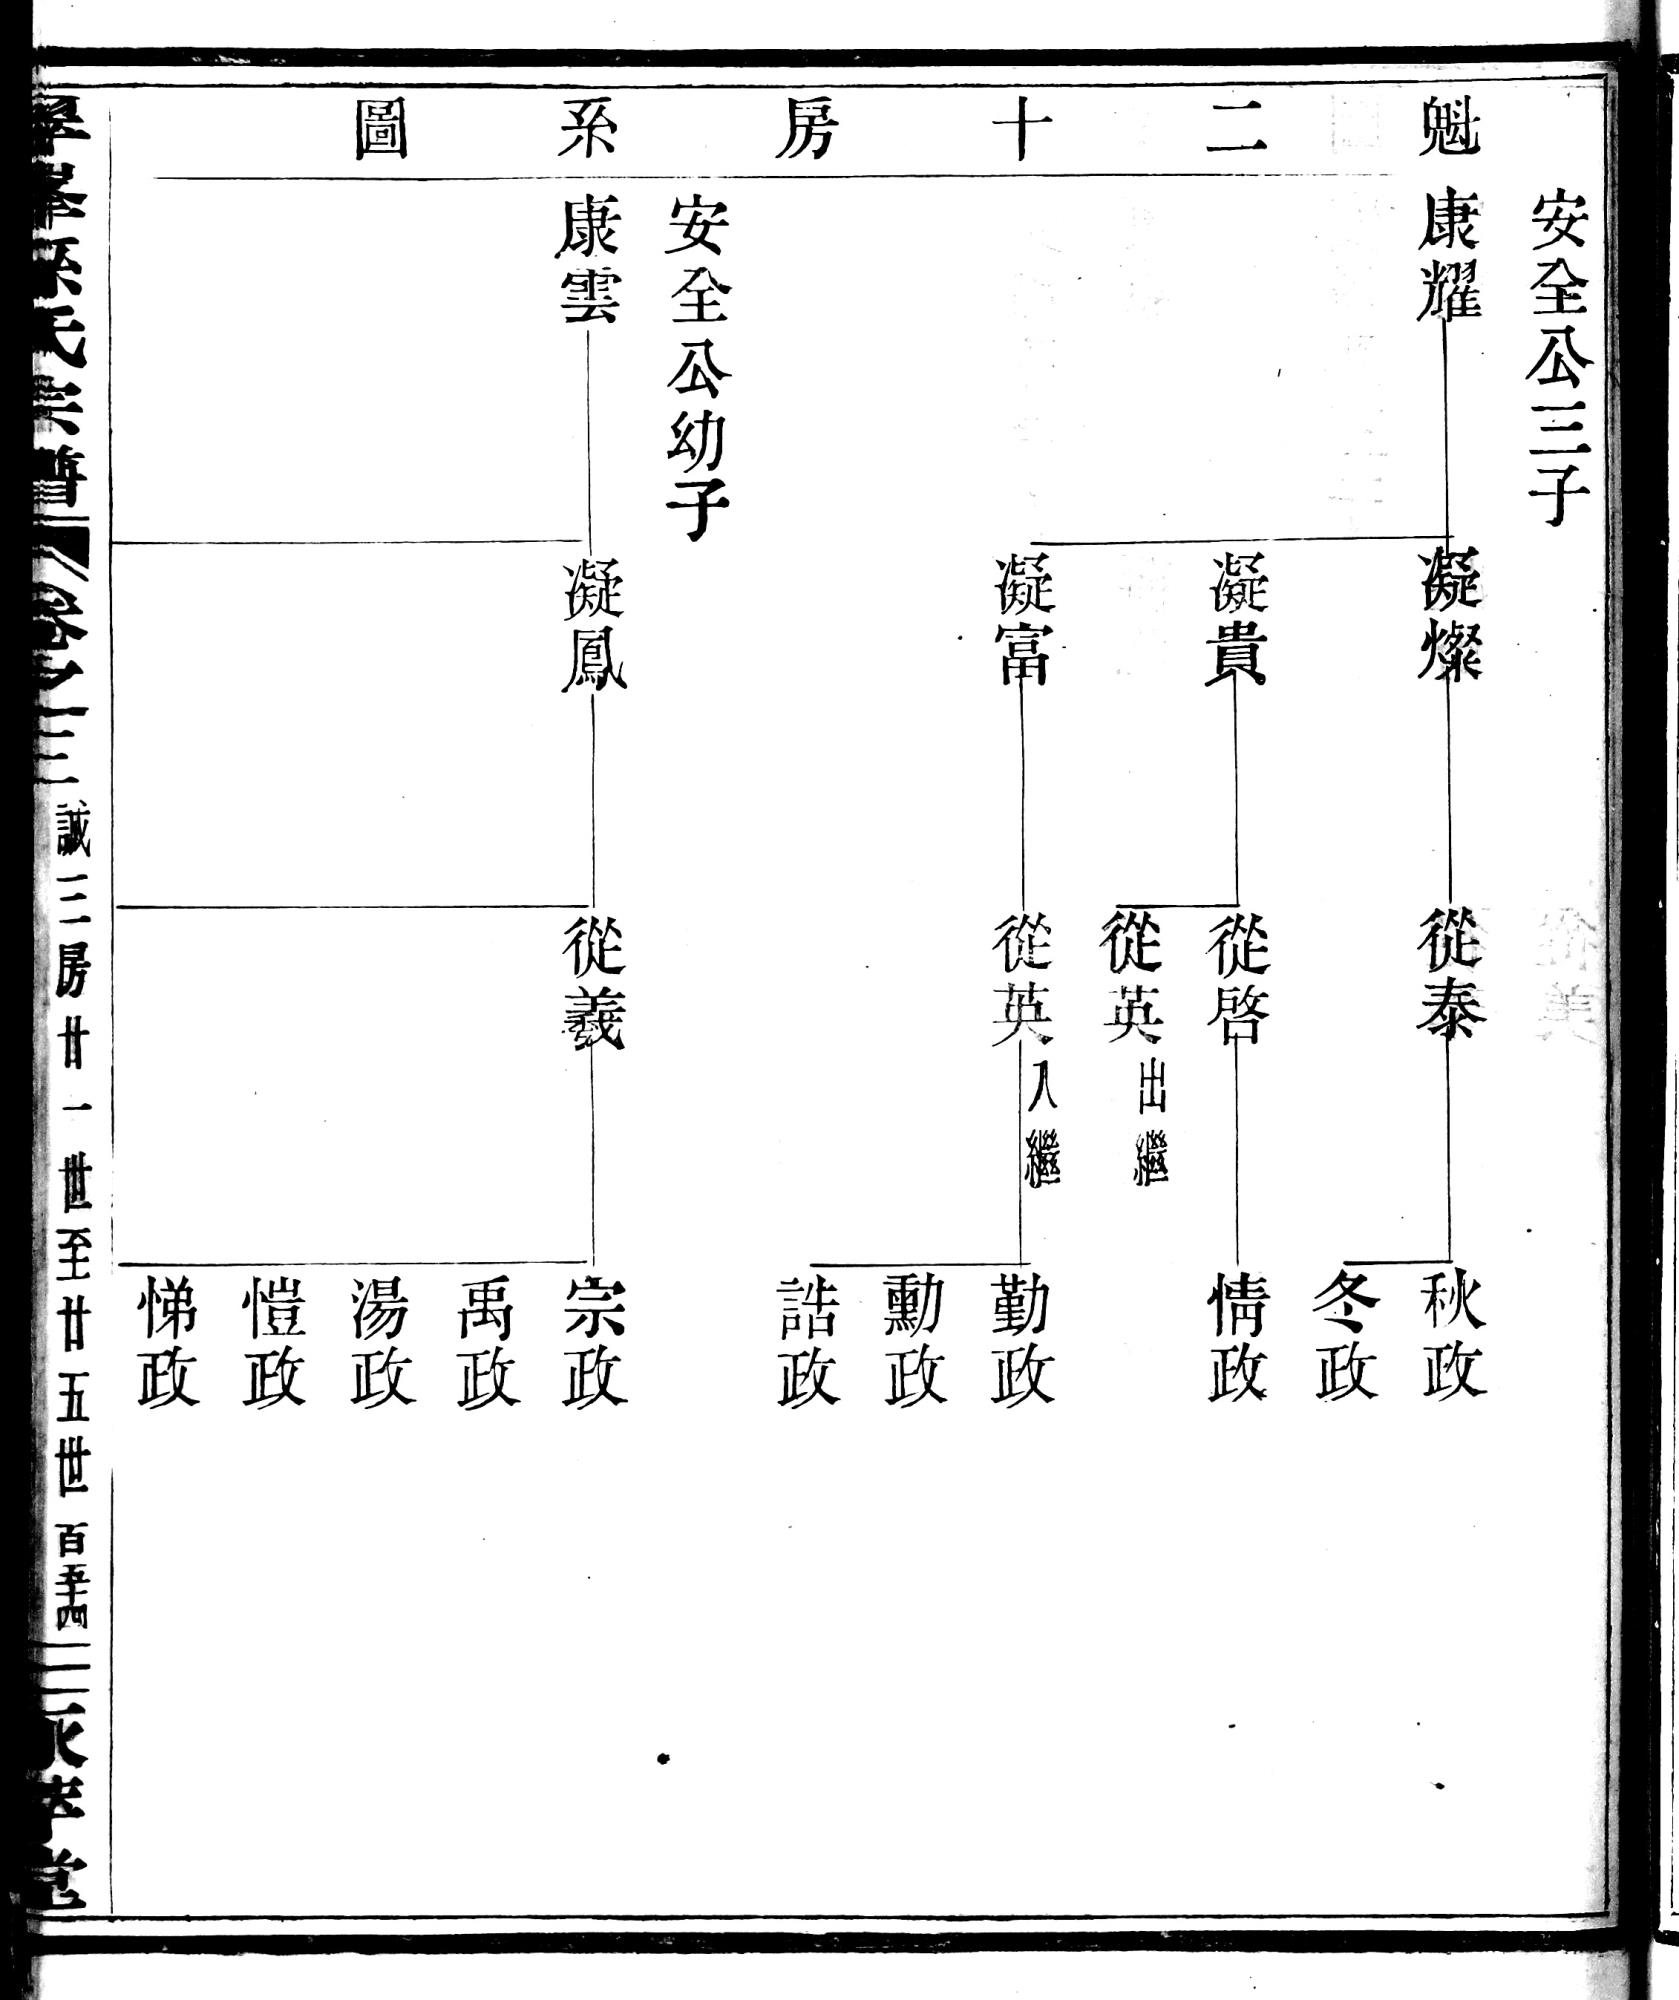 魁二十房系圖
安全公三子
康耀
凝燦
凝貴
凝富
從泰
從啓
從英出繼
從英入繼
秋政
冬政
情政
勤政
勳政
誥政
安全公幼子
康雲
凝鳳
從羲
宗政
禹政
湯政
愷政
悌政
孫氏宗譜 卷之三 誠三房廿一世至廿五世 百五十四 永孝堂